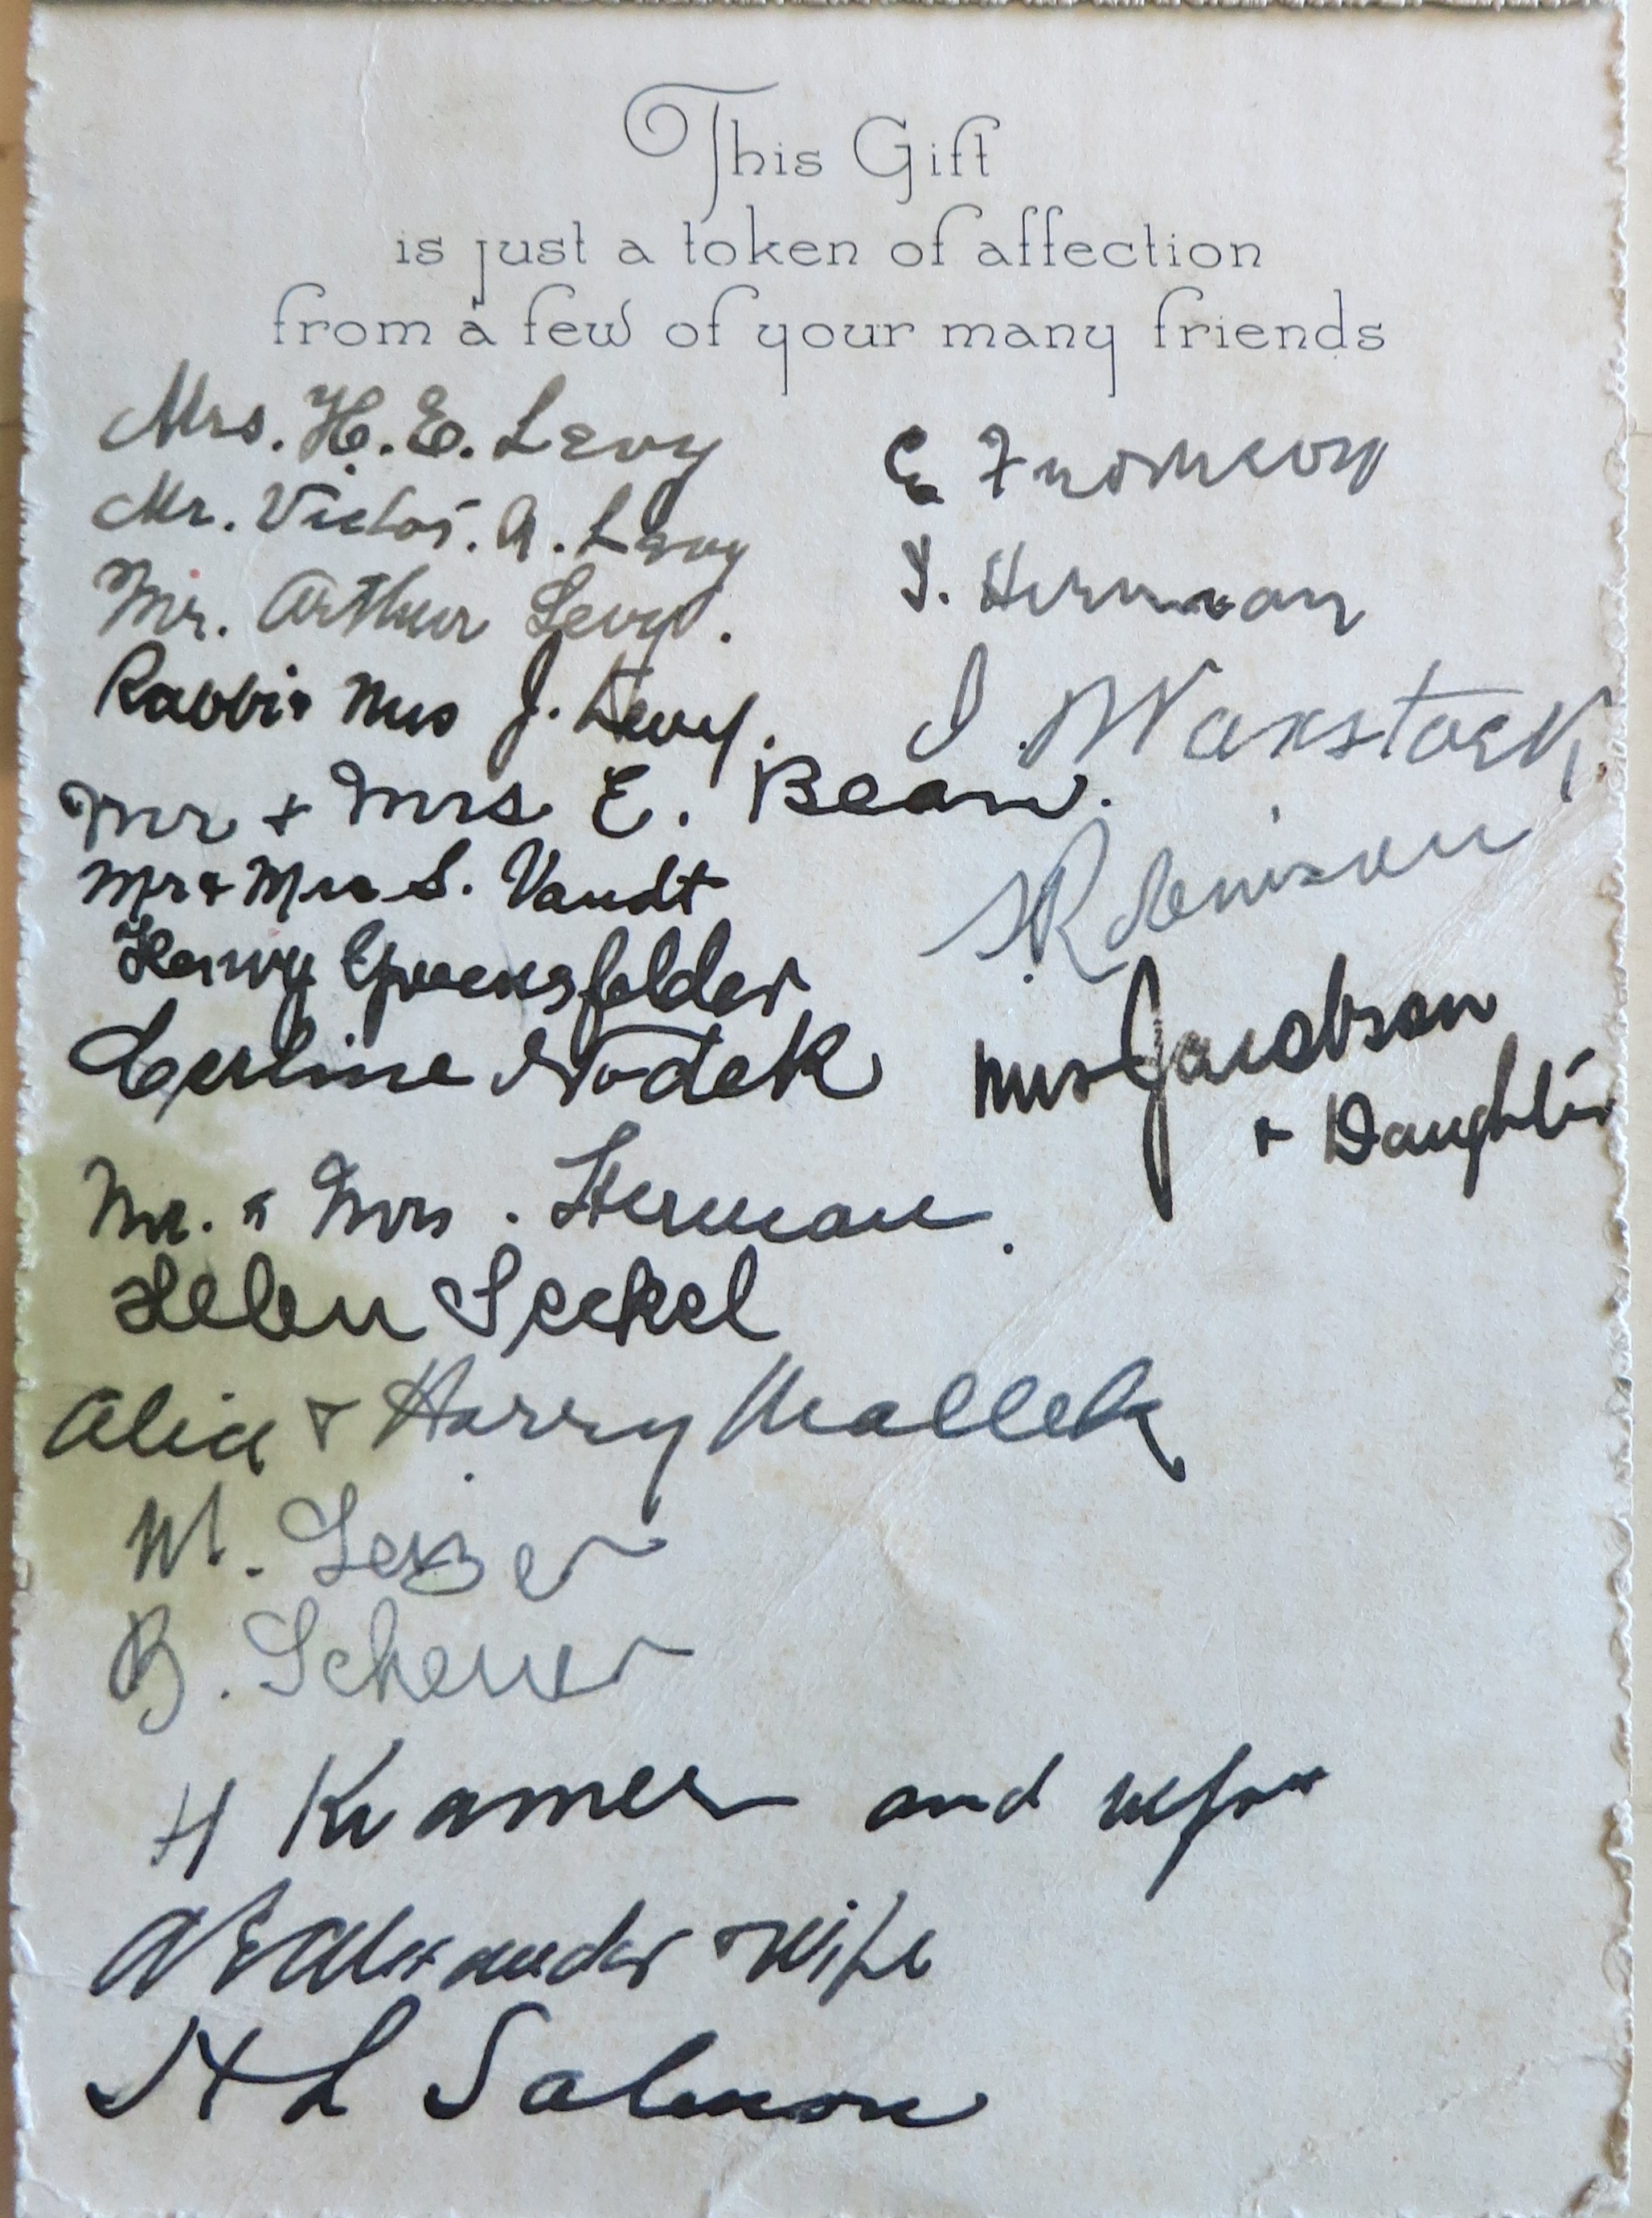 This Gift
is just a token of affection
from a few of your many friends
Mrs. H. E. Levy
Mr. Victor. A. Levy
Mr. Arthur Levy.
Rabbi & Mrs J. Levy.
Mr + Mrs E. Bean.
Mr & Mrs S. Vandt
Henry
Mr. & Mrs. Herman.
Helen Seckel
Alice & Harry Mallek
M.
B. Scheuer
H Kramer and wife
Alexander & Wife
H L Salmon
E
I. Herman
I. Wanstock
Robinson
Mrs Jacobson
& Daughter